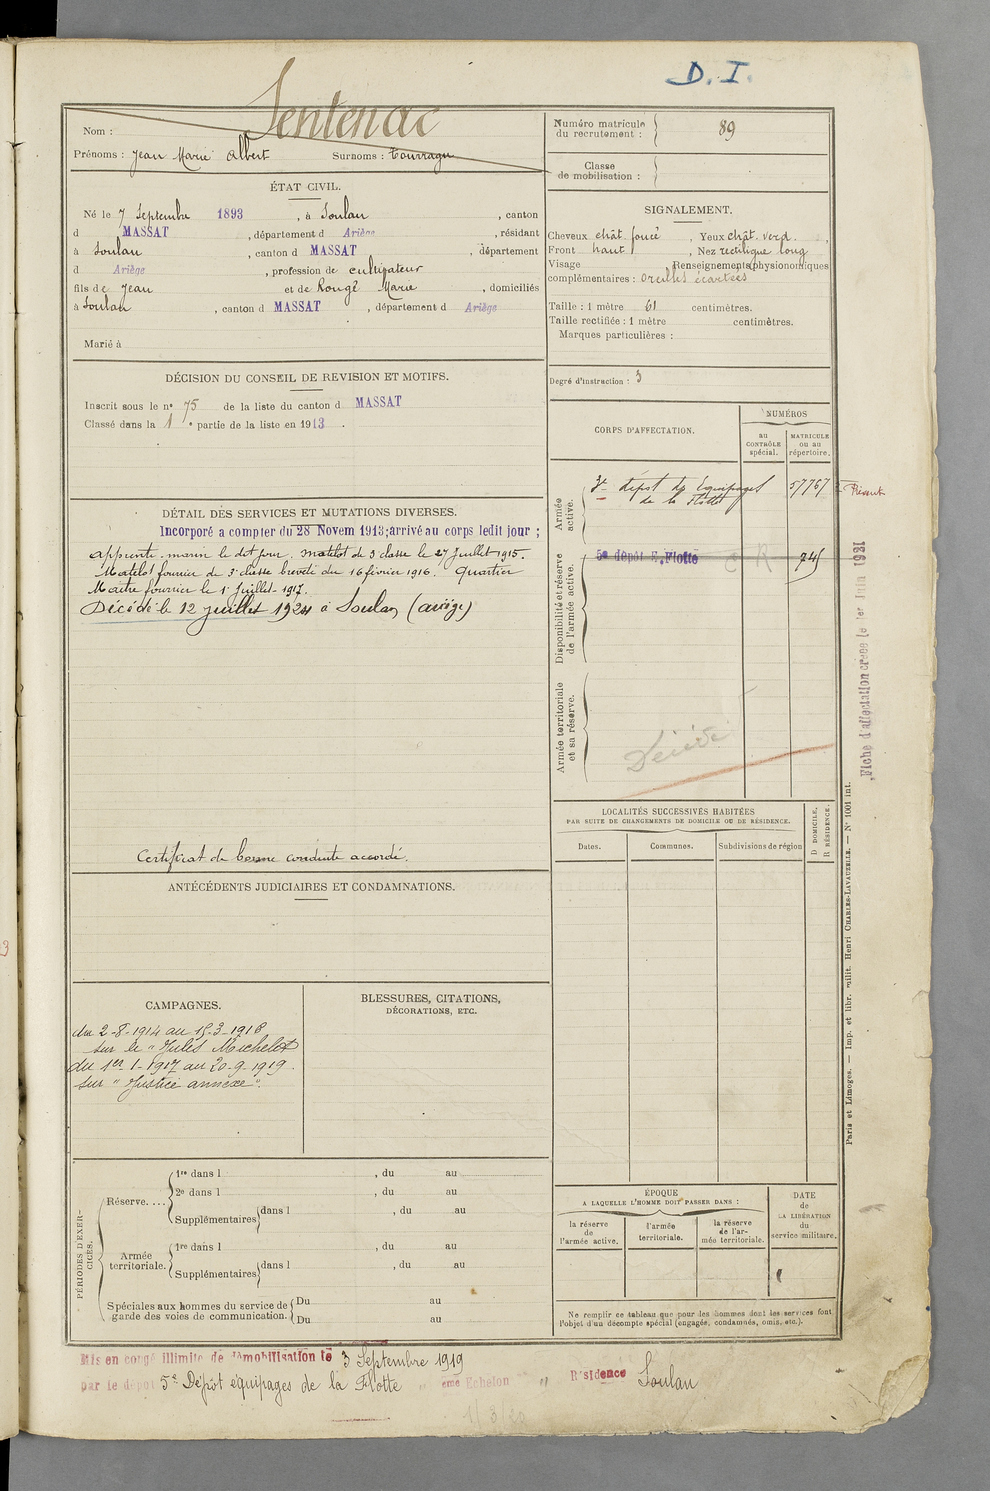 D. I.
Sentenac
Nom :
Prénoms : Jean Marie Albert Surnoms : Tourragu
Numéro matricule du recrutement : 89
Classe de mobilisation :
ÉTAT CIVIL.
Né le 7 Septembre 1893, à Soulan, canton
d MASSAT, département d Ariège, résidant
à Soulan, canton d MASSAT, département
d Ariège, profession de cultivateur
fils de Jean et de Rougé Marie, domiciliés
à Soulan, canton d MASSAT, département d Ariège
Marié à
SIGNALEMENT.
Cheveux chât. foncé, Yeux chât. verd.,
Front haut, Nez rectiligne long
Visage Renseignements physionomiques
complémentaires : oreilles écartées
Taille : 1 mètre 61 centimètres.
Taille rectifiée : 1 mètre centimètres.
Marques particulières :
Degré d'instruction : 3
DÉCISION DU CONSEIL DE REVISION ET MOTIFS.
Inscrit sous le n° 75 de la liste du canton d MASSAT
Classé dans la 1e partie de la liste en 1913.
DÉTAIL DES SERVICES ET MUTATIONS DIVERSES.
Incorporé a compter du 28 Novem 1913; arrivé au corps ledit jour ;
apprenti-marin le dit jour. matelot de 3 classe le 27 Juillet 1915.
Matelot fourrier de 3e classe breveté du 16 février 1916. Quartier
Maître fourrier le 1er Juillet 1917.
Décédé le 12 juillet 1924 à Soulan (ariège)
Certificat de bonne conduite accordé.
CORPS D'AFFECTATION.
NUMÉROS
au CONTRÔLE spécial.
MATRICULE ou au répertoire.
Armée active.
3e dépôt des Equipages
de la Flotte
57767
Disponibilité et réserve de l'armée active.
5e dépôt E. Flotte
C R
745
Armée territoriale et sa réserve.
Fiche d'affectation créée le 1er Juin 1921
ANTÉCÉDENTS JUDICIAIRES ET CONDAMNATIONS.
LOCALITÉS SUCCESSIVES HABITÉES
PAR SUITE DE CHANGEMENTS DE DOMICILE OU DE RÉSIDENCE.
Dates. Communes. Subdivisions de région
D DOMICILE. R RÉSIDENCE.
CAMPAGNES.
du 2-8-1914 au 15-3-1918
sur le "Jules Michelet"
du 1er-1-1917 au 20-9-1919.
sur "Justice annexe".
BLESSURES, CITATIONS,
DÉCORATIONS, ETC.
PÉRIODES D'EXERCICES.
Réserve....
1re dans l , du au
2e dans l , du au
Supplémentaires dans l , du au
Armée territoriale.
1re dans l , du au
Supplémentaires dans l , du au
Spéciales aux hommes du service de garde des voies de communication.
Du au
Du au
ÉPOQUE
A LAQUELLE L'HOMME DOIT PASSER DANS :
la réserve de l'armée active.
l'armée territoriale.
la réserve de l'armée territoriale.
DATE de LA LIBÉRATION du service militaire.
Ne remplir ce tableau que pour les hommes dont les services font
l'objet d'un décompte spécial (engagés, condamnés, omis, etc.).
Paris et Limoges. — Imp. et libr. milit. Henri CHARLES-LAVAUZELLE. — N° 1001 int.
Mis en congé illimité de démobilisation le 3 Septembre 1919
par le dépôt 5e Dépôt équipages de la Flotte " eme Echelon " Résidence Soulan